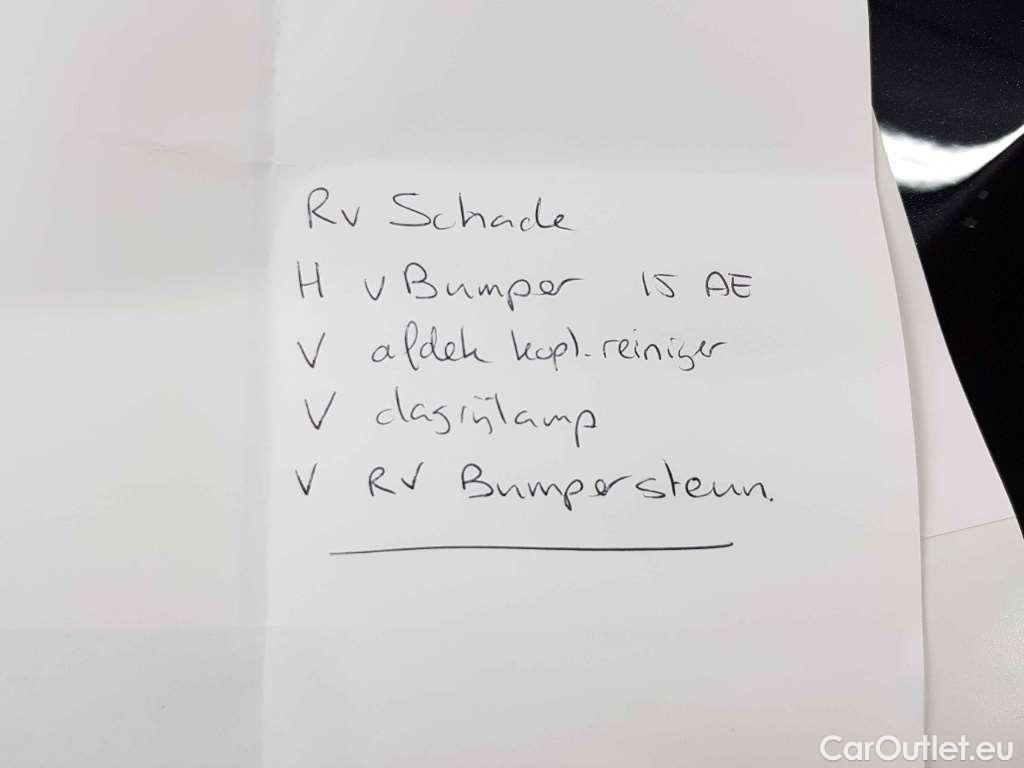 RV Schade
H V Bumper 15 AE
V afdek kopl. reiniger
V dagrijlamp
V RV Bumpersteun.
CarOutlet.eu